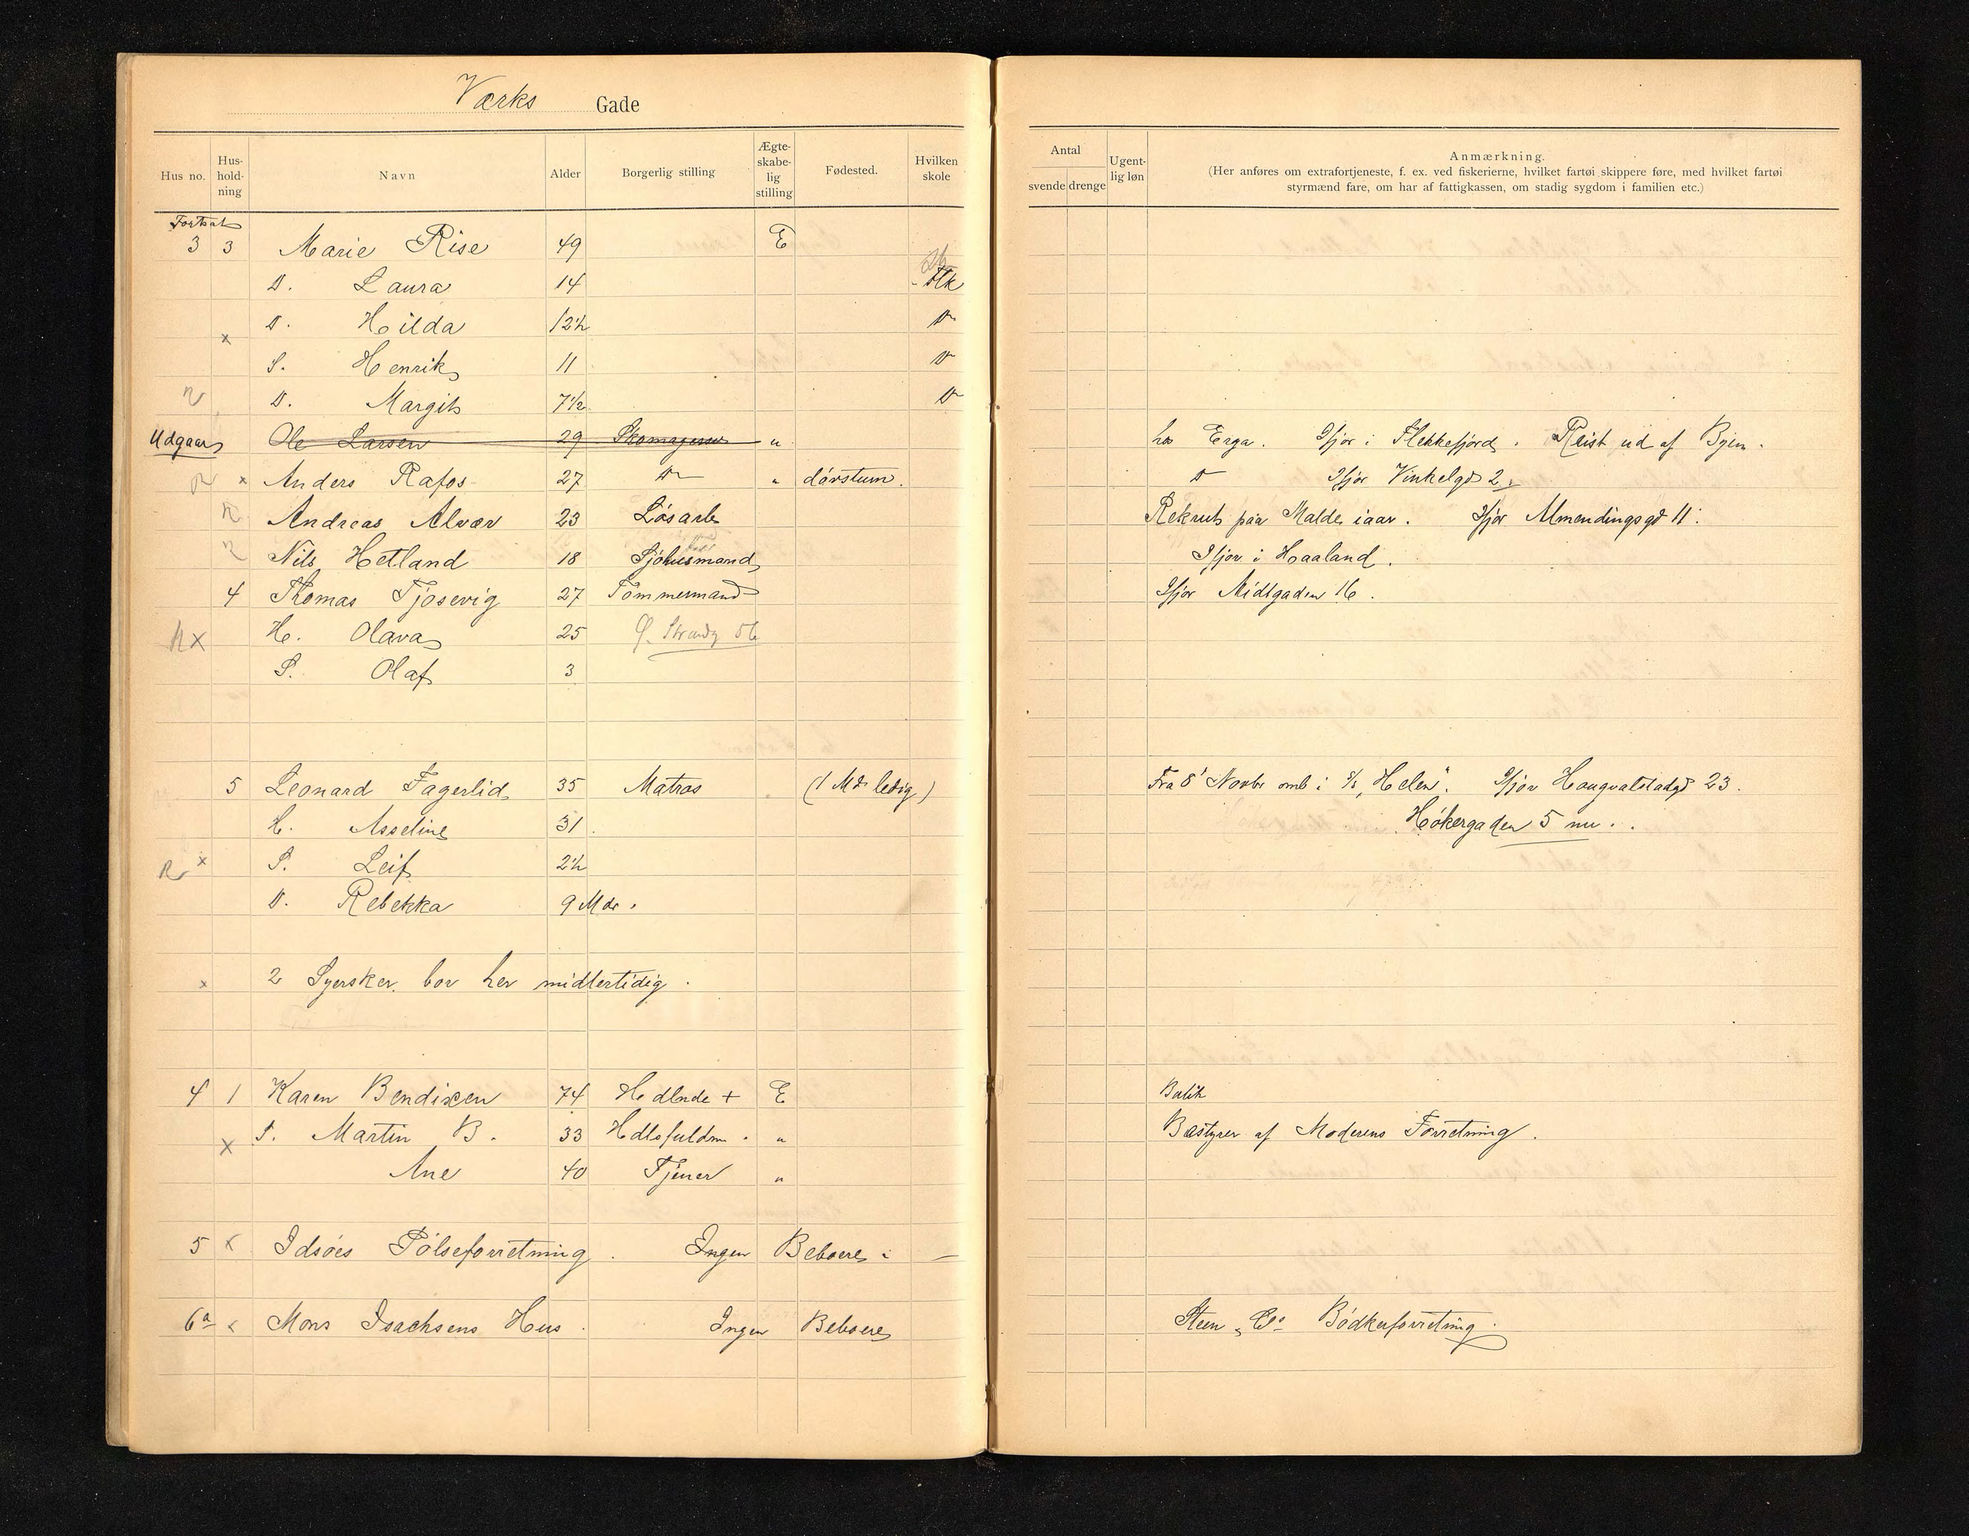 Værks Gade
Hus no. Hus-hold-ning Navn Alder Borgerlig stilling Ægte-skabe-lig stilling Fødested. Hvilken skole
Antal svende drenge Ugent-lig løn Anmærkning.
(Her anføres om extrafortjeneste, f. ex. ved fiskerierne, hvilket fartøi skippere føre, med hvilket fartøi
styrmænd fare, om har af fattigkassen, om stadig sygdom i familien etc.)
Fortsat
3 3 Marie Rise 49 E
D. Laura 14 Flk
D. Hilda 12½ D
x
S. Henrik 11 D
D. Margit 7½ D
Udgaar Ole Larsen 29 Skomagersv " hos Erga. Ifjor i Flekkefjord. Reist ud af Byen.
x Anders Rafos 27 D " dövstum. D Ifjor Vinkelgd 2.
Andreas Alvær 23 Løsarb Rekrut paa Malde iaar. Ifjor Almendingsgd 11.
Nils Hetland 18 Sjøhusmand Ifjor i Haaland.
4 Thomas Tjosevig 27 Tømmermand Ifjor Midtgaden 16.
R x H. Olava 25 Ø. Strandg 56
S. Olaf 3
5 Leonard Fagerlid 35 Matros (1 Md. ledig) Fra 8' Novbr omb i S/S "Helen". Ifjor Haugvalstadgd 23.
H. Asseline 31. Høkergaden 5 nu.
R x S. Leif 2½
D. Rebekka 9 Mdr.
x 2 Syersker bor her midlertidig.
4 1 Karen Bendixen 74 Hdlnde + E Butik
x S. Martin B. 33 Hdlsfuldm. " Bestyrer af Moderens Forretning.
Ane 40 Tjener "
5 x Idsøes Pølseforretning. Ingen Beboere.
6a x Mons Isachsens Hus. Ingen Beboere Steen & Co Bødkerforretning.